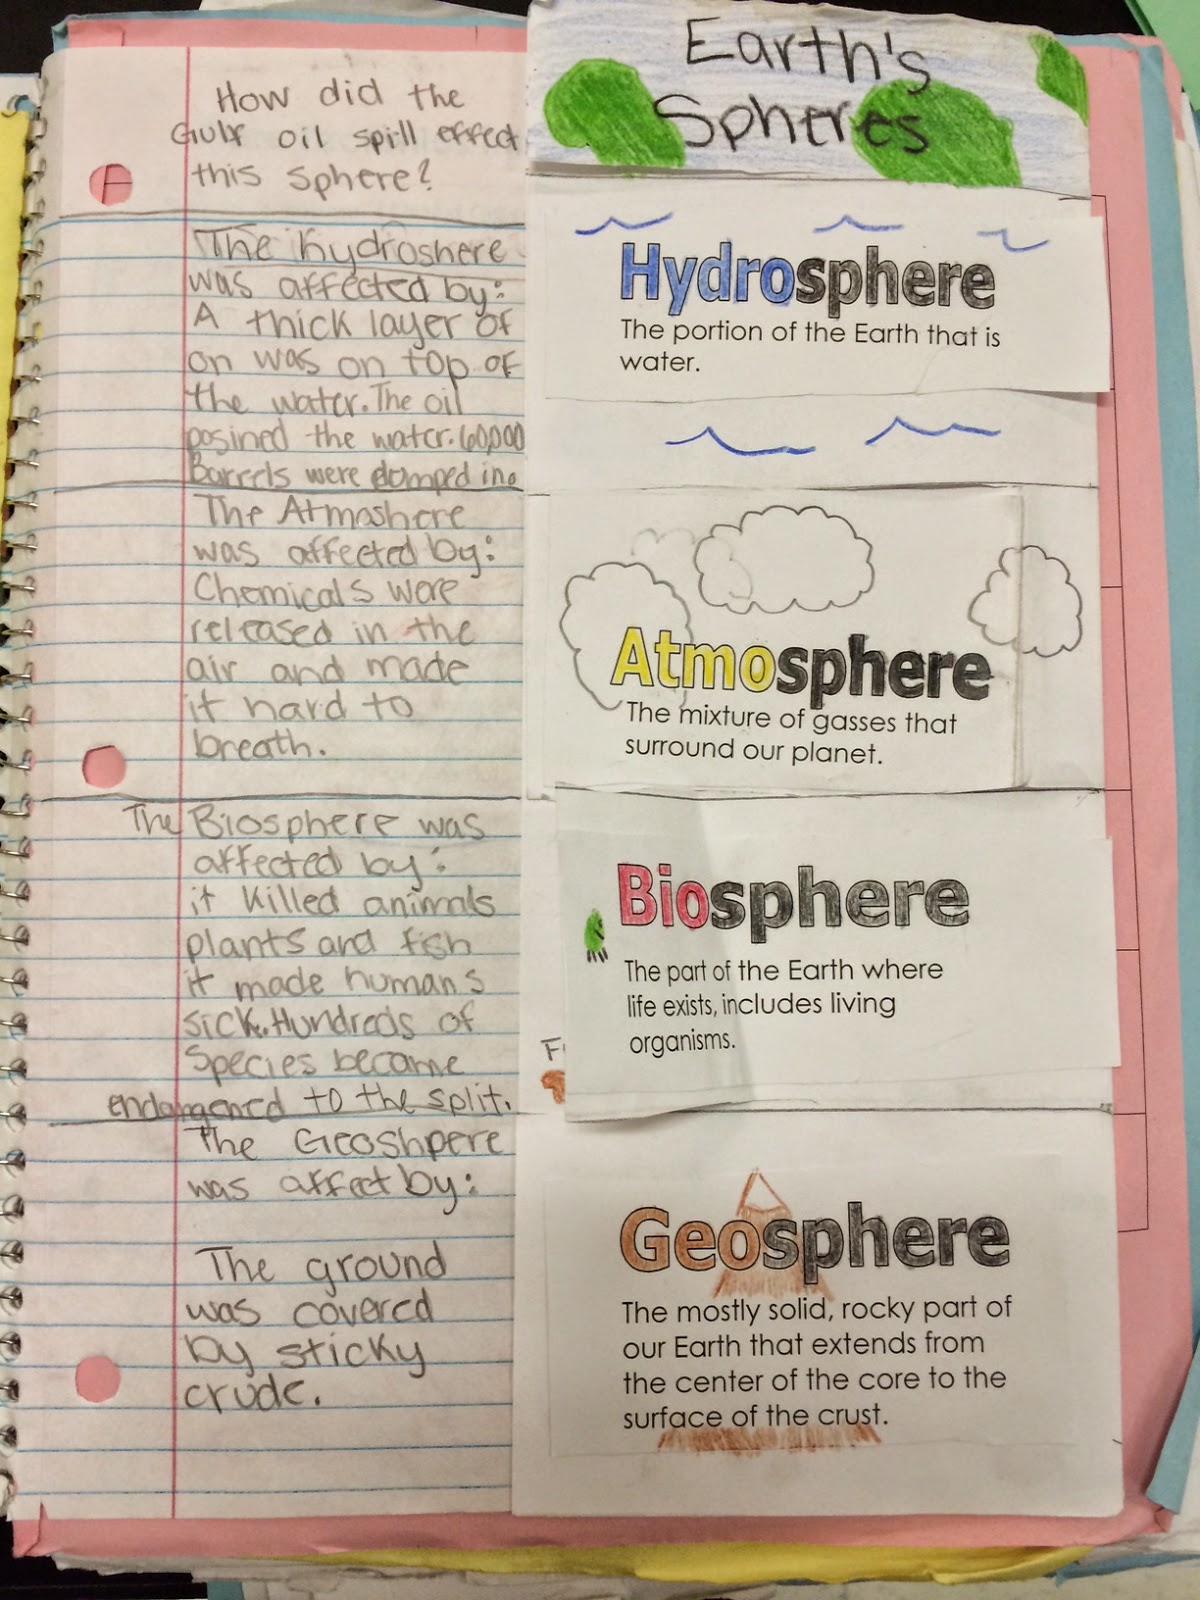 How did the
Gulf oil spill effect
this sphere?
The hydroshere
was affected by:
A thick layer of
on was on top of
the water. The oil
posined the water. 60,000
Barrels were domped in.
The Atmoshere
was affected by:
Chemicals were
released in the
air and made
it hard to
breath.
The Biosphere was
affected by:
it killed animals
plants and fish
it made humans
sick. Hundreds of
Species became
endangered to the split.
The Geoshpere
was affect by:
The ground
was covered
by sticky
crude.
Earth's
Spheres
Hydrosphere
The portion of the Earth that is
water.
Atmosphere
The mixture of gasses that
surround our planet.
Biosphere
The part of the Earth where
life exists, includes living
organisms.
Geosphere
The mostly solid, rocky part of
our Earth that extends from
the center of the core to the
surface of the crust.